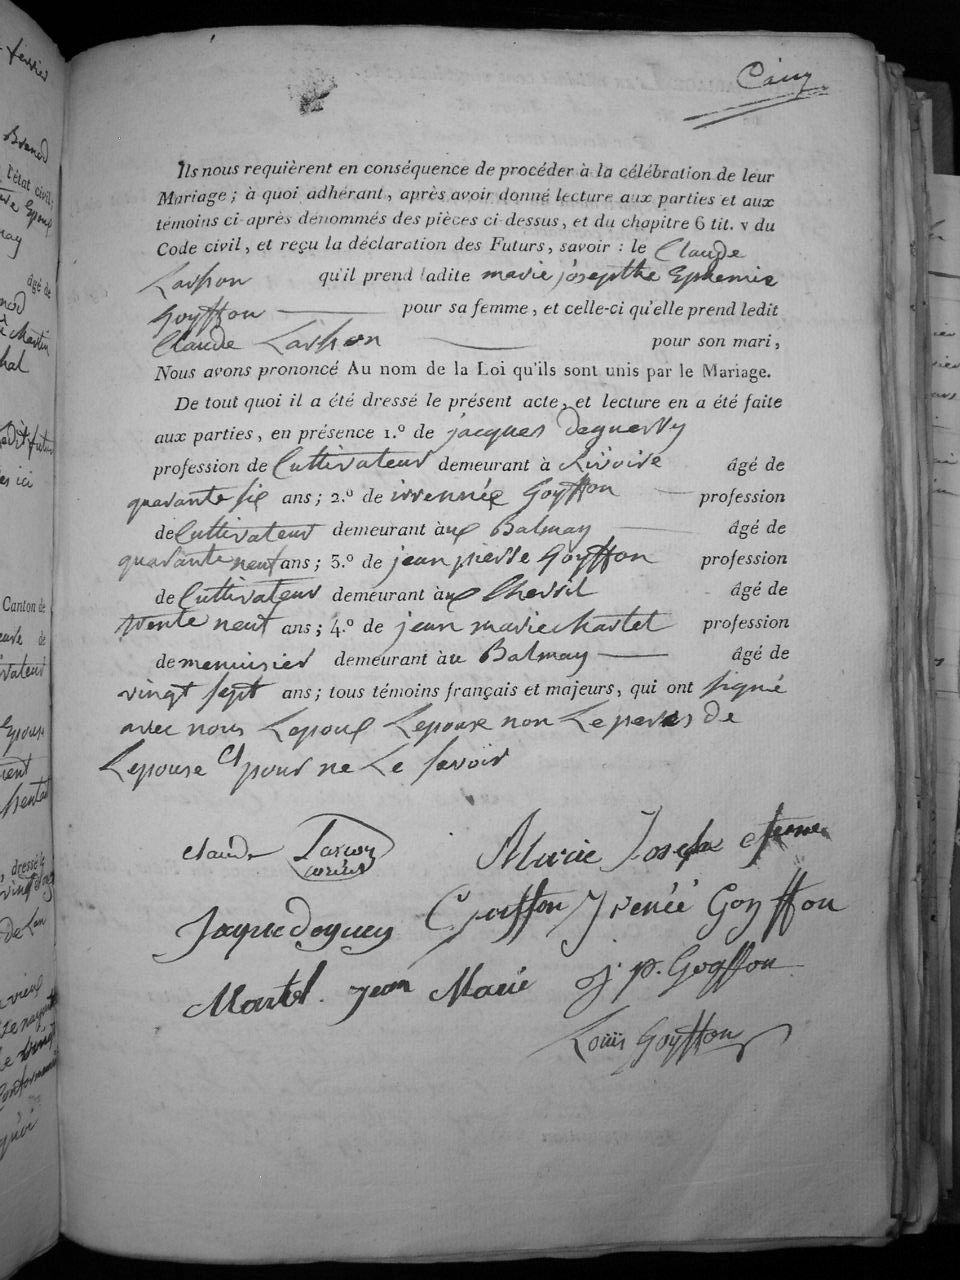 Cinq
Ils nous requièrent en conséquence de procéder à la célébration de leur
Mariage ; à quoi adhérant, après avoir donné lecture aux parties et aux
témoins ci-après dénommés des pièces ci-dessus, et du chapitre 6 tit. v du
Code civil, et reçu la déclaration des Futurs, savoir : le Claude
Larson qu'il prend ladite marie josepthe Ephemie
Goyffon pour sa femme, et celle-ci qu'elle prend ledit
Claude Larson pour son mari,
Nous avons prononcé Au nom de la Loi qu'ils sont unis par le Mariage.
De tout quoi il a été dressé le présent acte, et lecture en a été faite
aux parties, en présence 1.º de jacques Deguerry
profession de Cultivateur demeurant à âgé de
quarante six ans ; 2.º de irrennée Goyffon profession
de Cultivateur demeurant à Balmay âgé de
quarante neuf ans ; 3.º de jean pierre Goyffon profession
de Cultivateur demeurant à Cherril âgé de
trente neuf ans ; 4.º de jean marie Martel profession
de menuisier demeurant à Balmay âgé de
vingt sept ans ; tous témoins français et majeurs, qui ont signé
avec nous Lepoux Lepouse non Le peres de
Lepouse pour ne Le savoir
claude Larson Marie Josephe
Jaque Deguery Goiffon Irenéé Goyffon
Martel Jean Marie j. p. Goyffon
Louis Goyffon